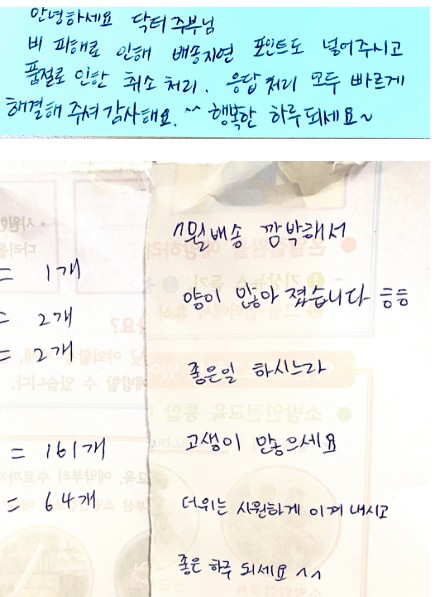 안녕하세요 닥터주부님
비 피해로 인해 배송지연 포인트도 넣어주시고
품절로 인한 취소처리. 응답처리 모두 빠르게
해결해 주셔 감사해요. ^^ 행복한 하루되세요~
= 1개
= 2개
= 2개
= 161개
= 64개
7월배송 깜박해서
양이 많아 졌습니다 ㅎㅎ
좋은일 하시느라
고생이 많으세요
더위는 시원하게 이겨 내시고
좋은 하루 되세요 ^^